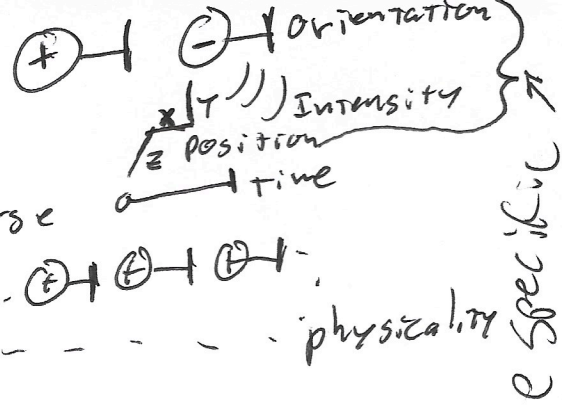 + - orientation
x y Intensity
z position
time
se
+ + +
physicality
e specific